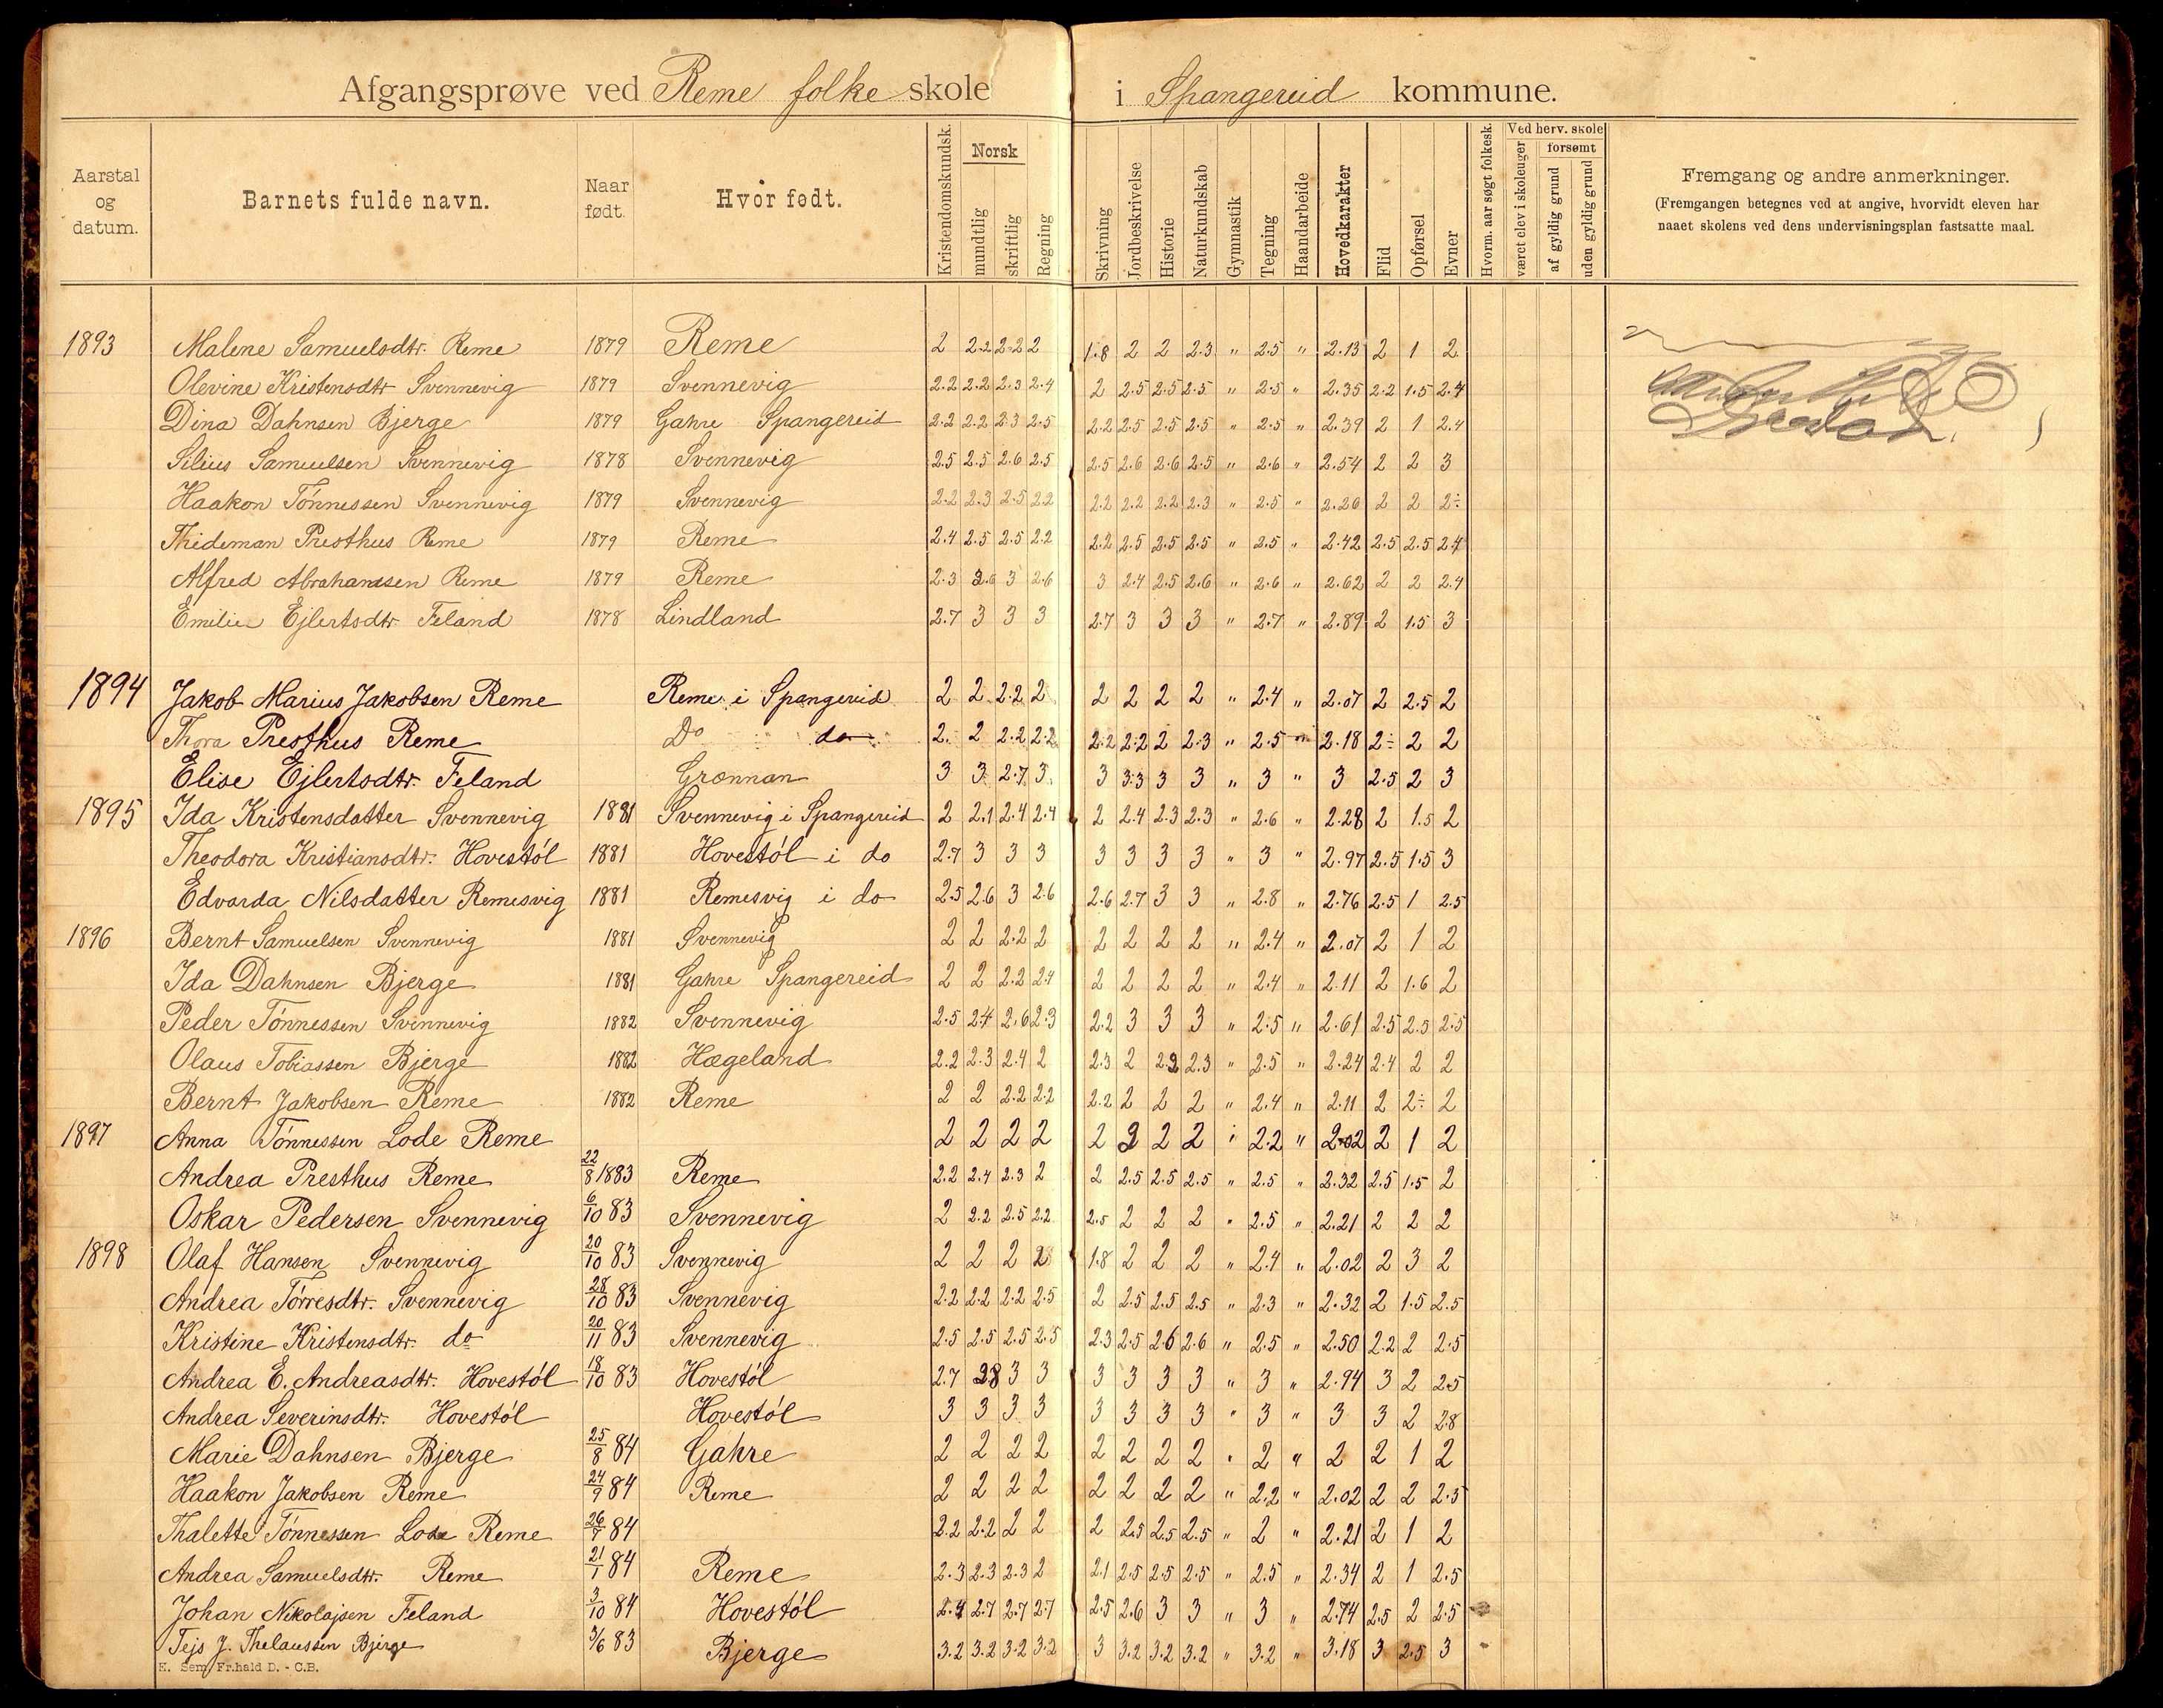 Afgangsprøve ved Reme folke skole i Spangereid kommune.
Aarstal og datum. Barnets fulde navn. Naar født. Hvor født. Kristendomskundsk. Norsk mundtlig skriftlig Regning Skrivning Jordbeskrivelse Historie Naturkundskab Gymnastik Tegning Haandarbeide Hovedkarakter Flid Opførsel Evner Hvorm. aar søgt folkesk. Ved herv. skole været elev i skoleuger forsømt af gyldig grund uden gyldig grund
Fremgang og andre anmerkninger.
(Fremgangen betegnes ved at angive, hvorvidt eleven har
naaet skolens ved dens undervisningsplan fastsatte maal.
1893 Malene Samuelsdtr. Reme 1879 Reme 2 2.2 2.2 2 1.8 2 2 2.3 " 2.5 " 2.13 2 1 2
Olevine Kristensdtr Svennevig 1879 Svennevig 2.2 2.2 2.3 2.4 2 2.5 2.5 2.5 " 2.5 " 2.35 2.2 1.5 2.4
Dina Dahnsen Bjerge 1879 Gahre Spangereid 2.2 2.2 2.3 2.5 2.2 2.5 2.5 2.5 " 2.5 " 2.39 2 1 2.4
Silius Samuelsen Svennevig 1878 Svennevig 2.5 2.5 2.6 2.5 2.5 2.6 2.6 2.5 " 2.6 " 2.54 2 2 3
Haakon Tönnessen Svennevig 1879 Svennevig 2.2 2.3 2.5 2.2 2.2 2.2 2.2 2.3 " 2.5 " 2.26 2 2 2÷
Thideman Presthus Reme 1879 Reme 2.4 2.5 2.5 2.2 2.2 2.5 2.5 2.5 " 2.5 " 2.42 2.5 2.5 2.4
Alfred Abrahamsen Reme 1879 Reme 2.3 3.6 3 2.6 3 2.4 2.5 2.6 " 2.6 " 2.62 2 2 2.4
Emilie Ejlertsdtr. Feland 1878 Lindland 2.7 3 3 3 2.7 3 3 3 " 2.7 " 2.89 2 1.5 3
1894 Jakob Marius Jakobsen Reme Reme i Spangereid 2 2 2.2 2 2 2 2 2 " 2.4 " 2.07 2 2.5 2
Thora Presthus Reme Do do 2. 2 2.2 2.2 2.2 2.2 2 2.3 " 2.5 " 2.18 2÷ 2 2
Elise Ejlertsdtr. Feland Grønnan 3 3 2.7 3 3 3.3 3 3 " 3 " 3 2.5 2 3
1895 Ida Kristensdatter Svennevig 1881 Svennevig i Spangereid 2 2.1 2.4 2.4 2 2.4 2.3 2.3 " 2.6 " 2.28 2 1.5 2
Theodora Kristiansdtr. Hovestöl 1881 Hovestöl i do 2.7 3 3 3 3 3 3 3 " 3 " 2.97 2.5 1.5 3
Edvarda Nilsdatter Remesvig 1881 Remesvig i do 2.5 2.6 3 2.6 2.6 2.7 3 3 " 2.8 " 2.76 2.5 1 2.5
1896 Bernt Samuelsen Svennevig 1881 Svennevig 2 2 2.2 2 2 2 2 2 " 2.4 " 2.07 2 1 2
Ida Dahnsen Bjerge 1881 Gahre Spangereid 2 2 2.2 2.4 2 2 2 2 " 2.4 " 2.11 2 1.6 2
Peder Tönnessen Svennevig 1882 Svennevig 2.5 2.4 2.6 2.3 2.2 3 3 3 " 2.5 " 2.61 2.5 2.5 2.5
Olaus Tobiassen Bjerge 1882 Hægeland 2.2 2.3 2.4 2 2.3 2 2.2 2.3 " 2.5 " 2.24 2.4 2 2
Bernt Jakobsen Reme 1882 Reme 2 2 2.2 2.2 2.2 2 2 2 " 2.4 " 2.11 2 2÷ 2
1897 Anna Tönnessen Lode Reme 2 2 2 2 2 2 2 2 " 2.2 " 2.02 2 1 2
Andrea Presthus Reme 22/8 1883 Reme 2.2 2.4 2.3 2 2 2.5 2.5 2.5 " 2.5 " 2.32 2.5 1.5 2
Oskar Pedersen Svennevig 6/10 83 Svennevig 2 2.2 2.5 2.2 2.5 2 2 2 " 2.5 " 2.21 2 2 2
1898 Olaf Hansen Svennevig 20/10 83 Svennevig 2 2 2 1.8 2 2 2 " 2.4 " 2.02 2 3 2
Andrea Törresdtr. Svennevig 28/10 83 Svennevig 2.2 2.2 2.2 2.5 2 2.5 2.5 2.5 " 2.3 " 2.32 2 1.5 2.5
Kristine Kristensdtr. do 20/11 83 Svennevig 2.5 2.5 2.5 2.5 2.3 2.5 2.6 2.6 " 2.5 " 2.50 2.2 2 2.5
Andrea E. Andreasdtr. Hovestöl 18/10 83 Hovestöl 2.7 2.8 3 3 3 3 3 3 " 3 " 2.94 3 2 2.5
Andrea Severinsdtr. Hovestöl Hovestöl 3 3 3 3 3 3 3 3 " 3 " 3 3 2 2.8
Marie Dahnsen Bjerge 25/8 84 Gahre 2 2 2 2 2 2 2 2 " 2 " 2 2 1 2
Haakon Jakobsen Reme 24/9 84 Reme 2 2 2 2 2 2 2 2 " 2.2 " 2.02 2 2 2.5
Thalette Tönnessen Lode Reme 26/7 84 2.2 2.2 2 2 2 2.5 2.5 2.5 " 2 " 2.21 2 1 2
Andrea Samuelsdtr. Reme 21/1 84 Reme 2.3 2.3 2.3 2 2.1 2.5 2.5 2.5 " 2.5 " 2.34 2 1 2.5
Johan Nikolajsen Feland 3/10 84 Hovestöl 2.4 2.7 2.7 2.7 2.5 2.6 3 3 " 3 " 2.74 2.5 2 2.5
Tejs J. Thelaussen Bjerge 3/6 83 Bjerge 3.2 3.2 3.2 3.2 3 3.2 3.2 3.2 " 3.2 " 3.18 3 2.5 3
E. Sem, Fr.hald D. - C.B.